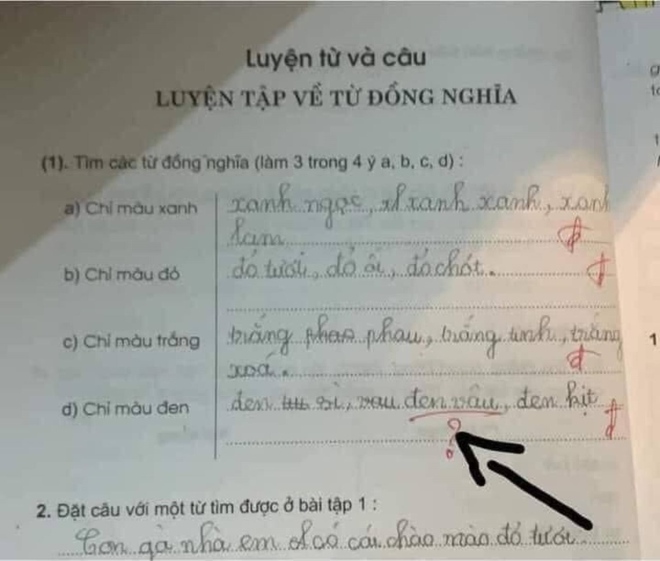 Luyện từ và câu
LUYỆN TẬP VỀ TỪ ĐỒNG NGHĨA
(1). Tìm các từ đồng nghĩa (làm 3 trong 4 ý a, b, c, d) :
a) Chỉ màu xanh xanh ngọc, xanh xanh, xanh
lam đ
b) Chỉ màu đỏ đỏ tươi, đỏ ối, đỏ chót. đ
c) Chỉ màu trắng trắng phau phau, trắng tinh, trắng
xoá. đ
d) Chỉ màu đen đen sì, đen vâu, đen hịt đ
?
2. Đặt câu với một từ tìm được ở bài tập 1 :
Con gà nhà em có cái chào mào đỏ tươi.
1